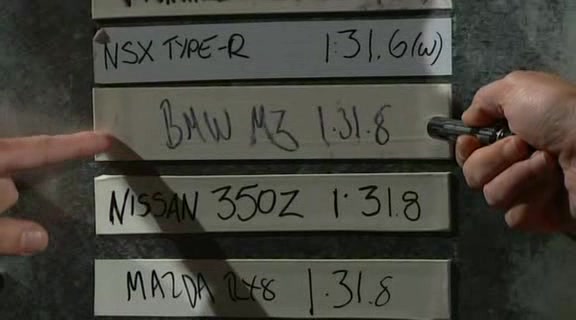 NSX TYPE-R 1:31.6(W)
BMW M3 1.31.8
NISSAN 350Z 1.31.8
MAZDA RX8 1.31.8